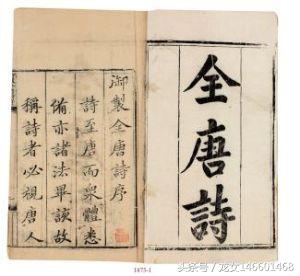 全唐詩
御製全唐詩序
詩至唐而衆體悉
備亦諸法畢該故
稱詩者必視唐人
1873-1
头条号/龙女146601468